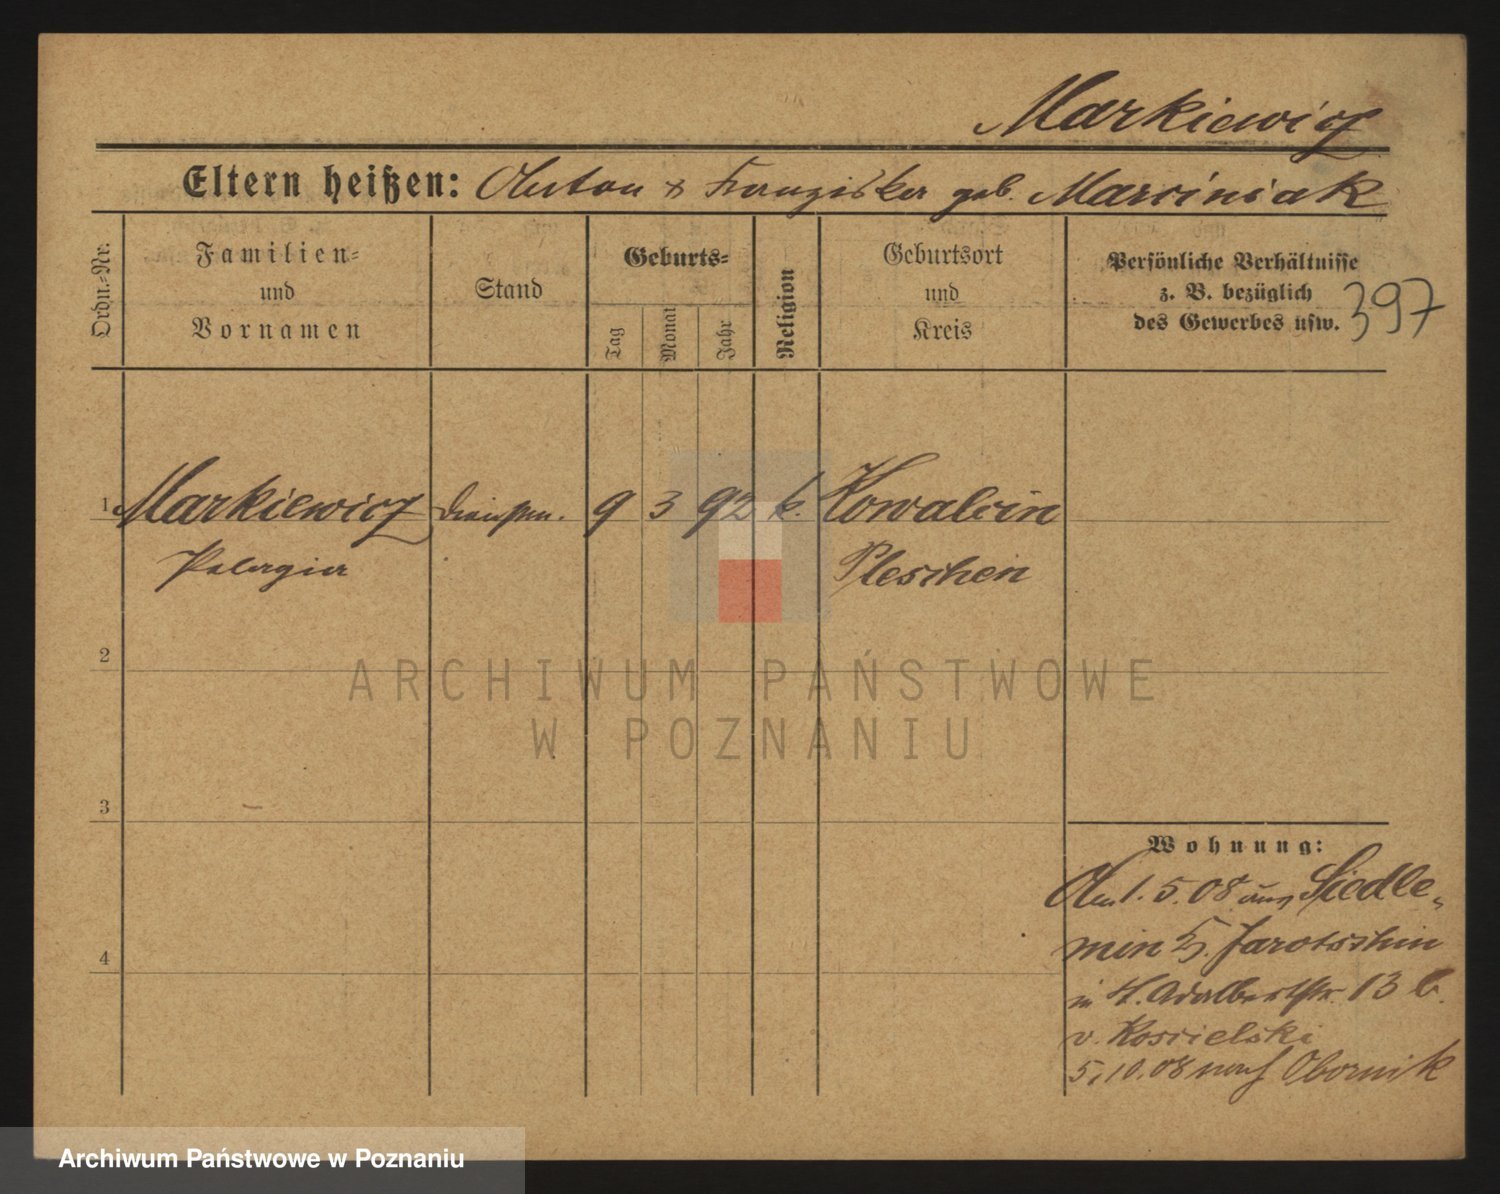 Markiewicz
Eltern heißen: Anton & Franziska geb. Marciniak
Ordn.-Nr.
Familien-
und
Vornamen
Stand
Geburts-
Tag
Monat
Jahr
Religion
Geburtsort
und
Kreis
Persönliche Verhältnisse
z. B. bezüglich
des Gewerbes usw.
397
1 Markiewicz 9 3 92 k. Kowalcin
Pelagia Pleschen
2
ARCHIWUM PAŃSTWOWE
W POZNANIU
3
Wohnung:
Am 1. 5. 08 aus Siedle-
min Jarotschin
in St. Adalbertstr. 13 b.
v. Koscielski
5.10.08 nach Obornik
4
Archiwum Państwowe w Poznaniu